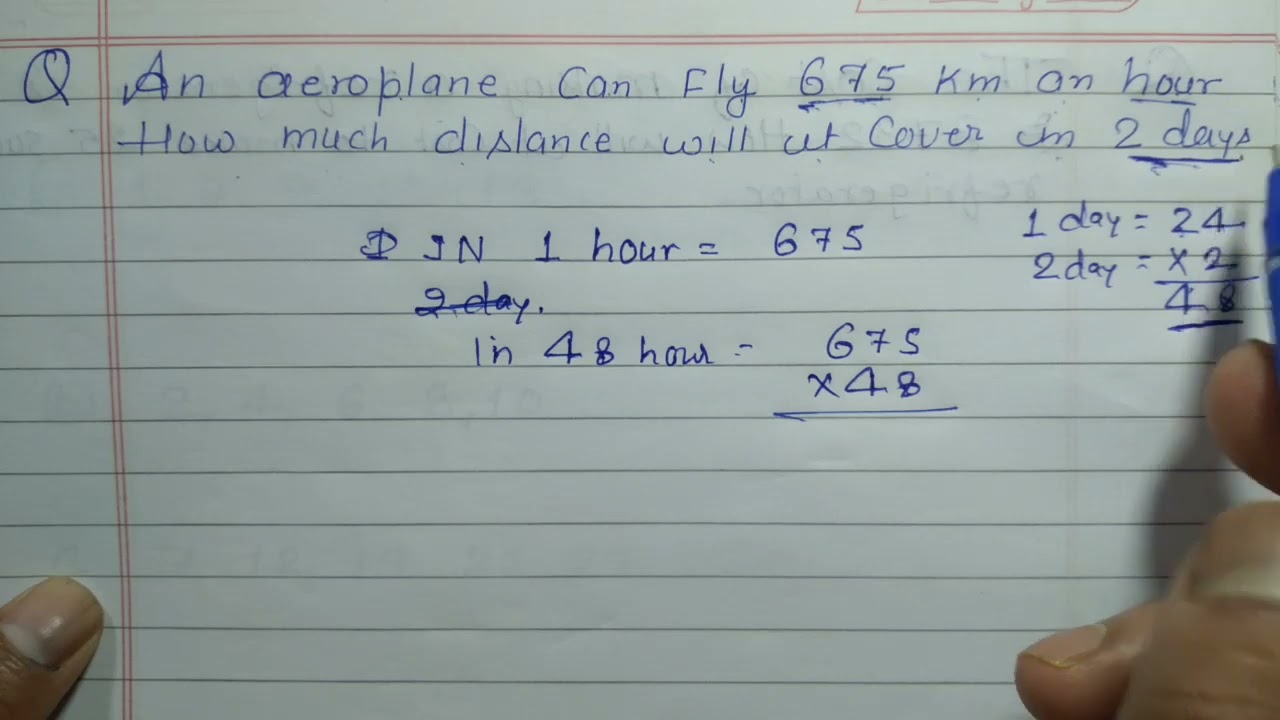 Q An aeroplane Can Fly 675 Km an hour
How much distance will it Cover in 2 days
1 day = 24
2 day = x 2
48
IN 1 hour = 675
2 day.
In 48 hour = 675
x 48